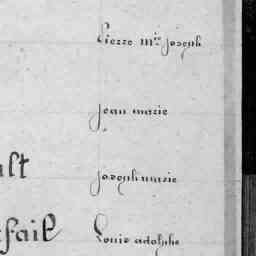 Pierre mie joseph
jean marie
joseph marie
Louis adolphe